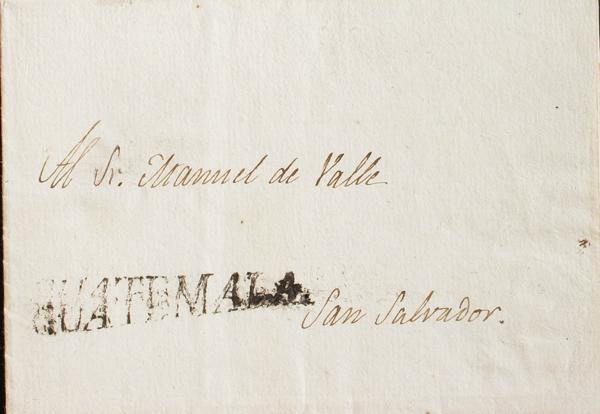 Al Sr. Manuel de Valle
GUATEMALA.
San Salvador.